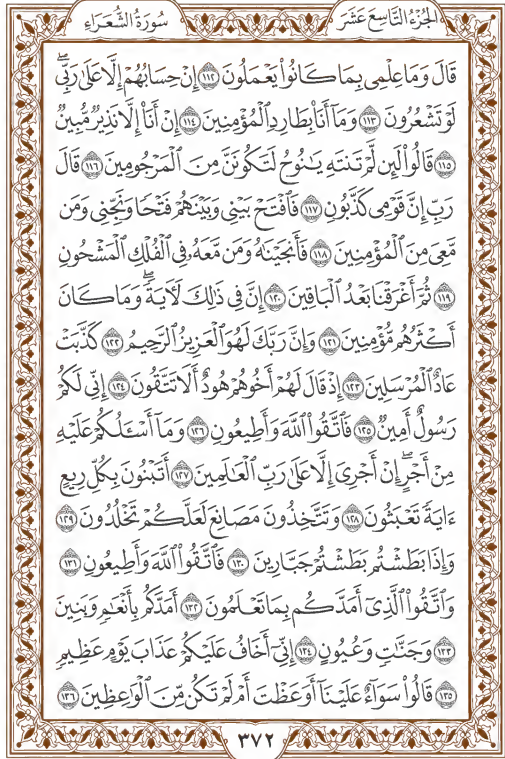 الجُزْءُ التَّاسِعَ عَشَرَ
سُورَةُ الشُّعَرَاءِ
قَالَ وَمَا عِلْمِي بِمَا كَانُواْ يَعْمَلُونَ ١١٢ إِنْ حِسَابُهُمْ إِلَّا عَلَىٰ رَبِّيۖ
لَوْ تَشْعُرُونَ ١١٣ وَمَآ أَنَا۠ بِطَارِدِ ٱلْمُؤْمِنِينَ ١١٤ إِنْ أَنَا۠ إِلَّا نَذِيرٌ مُّبِينٌ
١١٥ قَالُواْ لَئِن لَّمْ تَنتَهِ يَٰنُوحُ لَتَكُونَنَّ مِنَ ٱلْمَرْجُومِينَ ١١٦ قَالَ
رَبِّ إِنَّ قَوْمِي كَذَّبُونِ ١١٧ فَٱفْتَحْ بَيْنِي وَبَيْنَهُمْ فَتْحًا وَنَجِّنِي وَمَن
مَّعِيَ مِنَ ٱلْمُؤْمِنِينَ ١١٨ فَأَنجَيْنَٰهُ وَمَن مَّعَهُۥ فِي ٱلْفُلْكِ ٱلْمَشْحُونِ
١١٩ ثُمَّ أَغْرَقْنَا بَعْدُ ٱلْبَاقِينَ ١٢٠ إِنَّ فِي ذَٰلِكَ لَأٓيَةًۖ وَمَا كَانَ
أَكْثَرُهُم مُّؤْمِنِينَ ١٢١ وَإِنَّ رَبَّكَ لَهُوَ ٱلْعَزِيزُ ٱلرَّحِيمُ ١٢٢ كَذَّبَتْ
عَادٌ ٱلْمُرْسَلِينَ ١٢٣ إِذْ قَالَ لَهُمْ أَخُوهُمْ هُودٌ أَلَا تَتَّقُونَ ١٢٤ إِنِّي لَكُمْ
رَسُولٌ أَمِينٌ ١٢٥ فَٱتَّقُواْ ٱللَّهَ وَأَطِيعُونِ ١٢٦ وَمَآ أَسْـَٔلُكُمْ عَلَيْهِ
مِنْ أَجْرٍۖ إِنْ أَجْرِيَ إِلَّا عَلَىٰ رَبِّ ٱلْعَٰلَمِينَ ١٢٧ أَتَبْنُونَ بِكُلِّ رِيعٍ
ءَايَةً تَعْبَثُونَ ١٢٨ وَتَتَّخِذُونَ مَصَانِعَ لَعَلَّكُمْ تَخْلُدُونَ ١٢٩
وَإِذَا بَطَشْتُم بَطَشْتُمْ جَبَّارِينَ ١٣٠ فَٱتَّقُواْ ٱللَّهَ وَأَطِيعُونِ ١٣١
وَٱتَّقُواْ ٱلَّذِيٓ أَمَدَّكُم بِمَا تَعْلَمُونَ ١٣٢ أَمَدَّكُم بِأَنْعَٰمٍ وَبَنِينَ
١٣٣ وَجَنَّٰتٍ وَعُيُونٍ ١٣٤ إِنِّيٓ أَخَافُ عَلَيْكُمْ عَذَابَ يَوْمٍ عَظِيمٍ
١٣٥ قَالُواْ سَوَآءٌ عَلَيْنَآ أَوَعَظْتَ أَمْ لَمْ تَكُن مِّنَ ٱلْوَٰعِظِينَ ١٣٦
٣٧٢